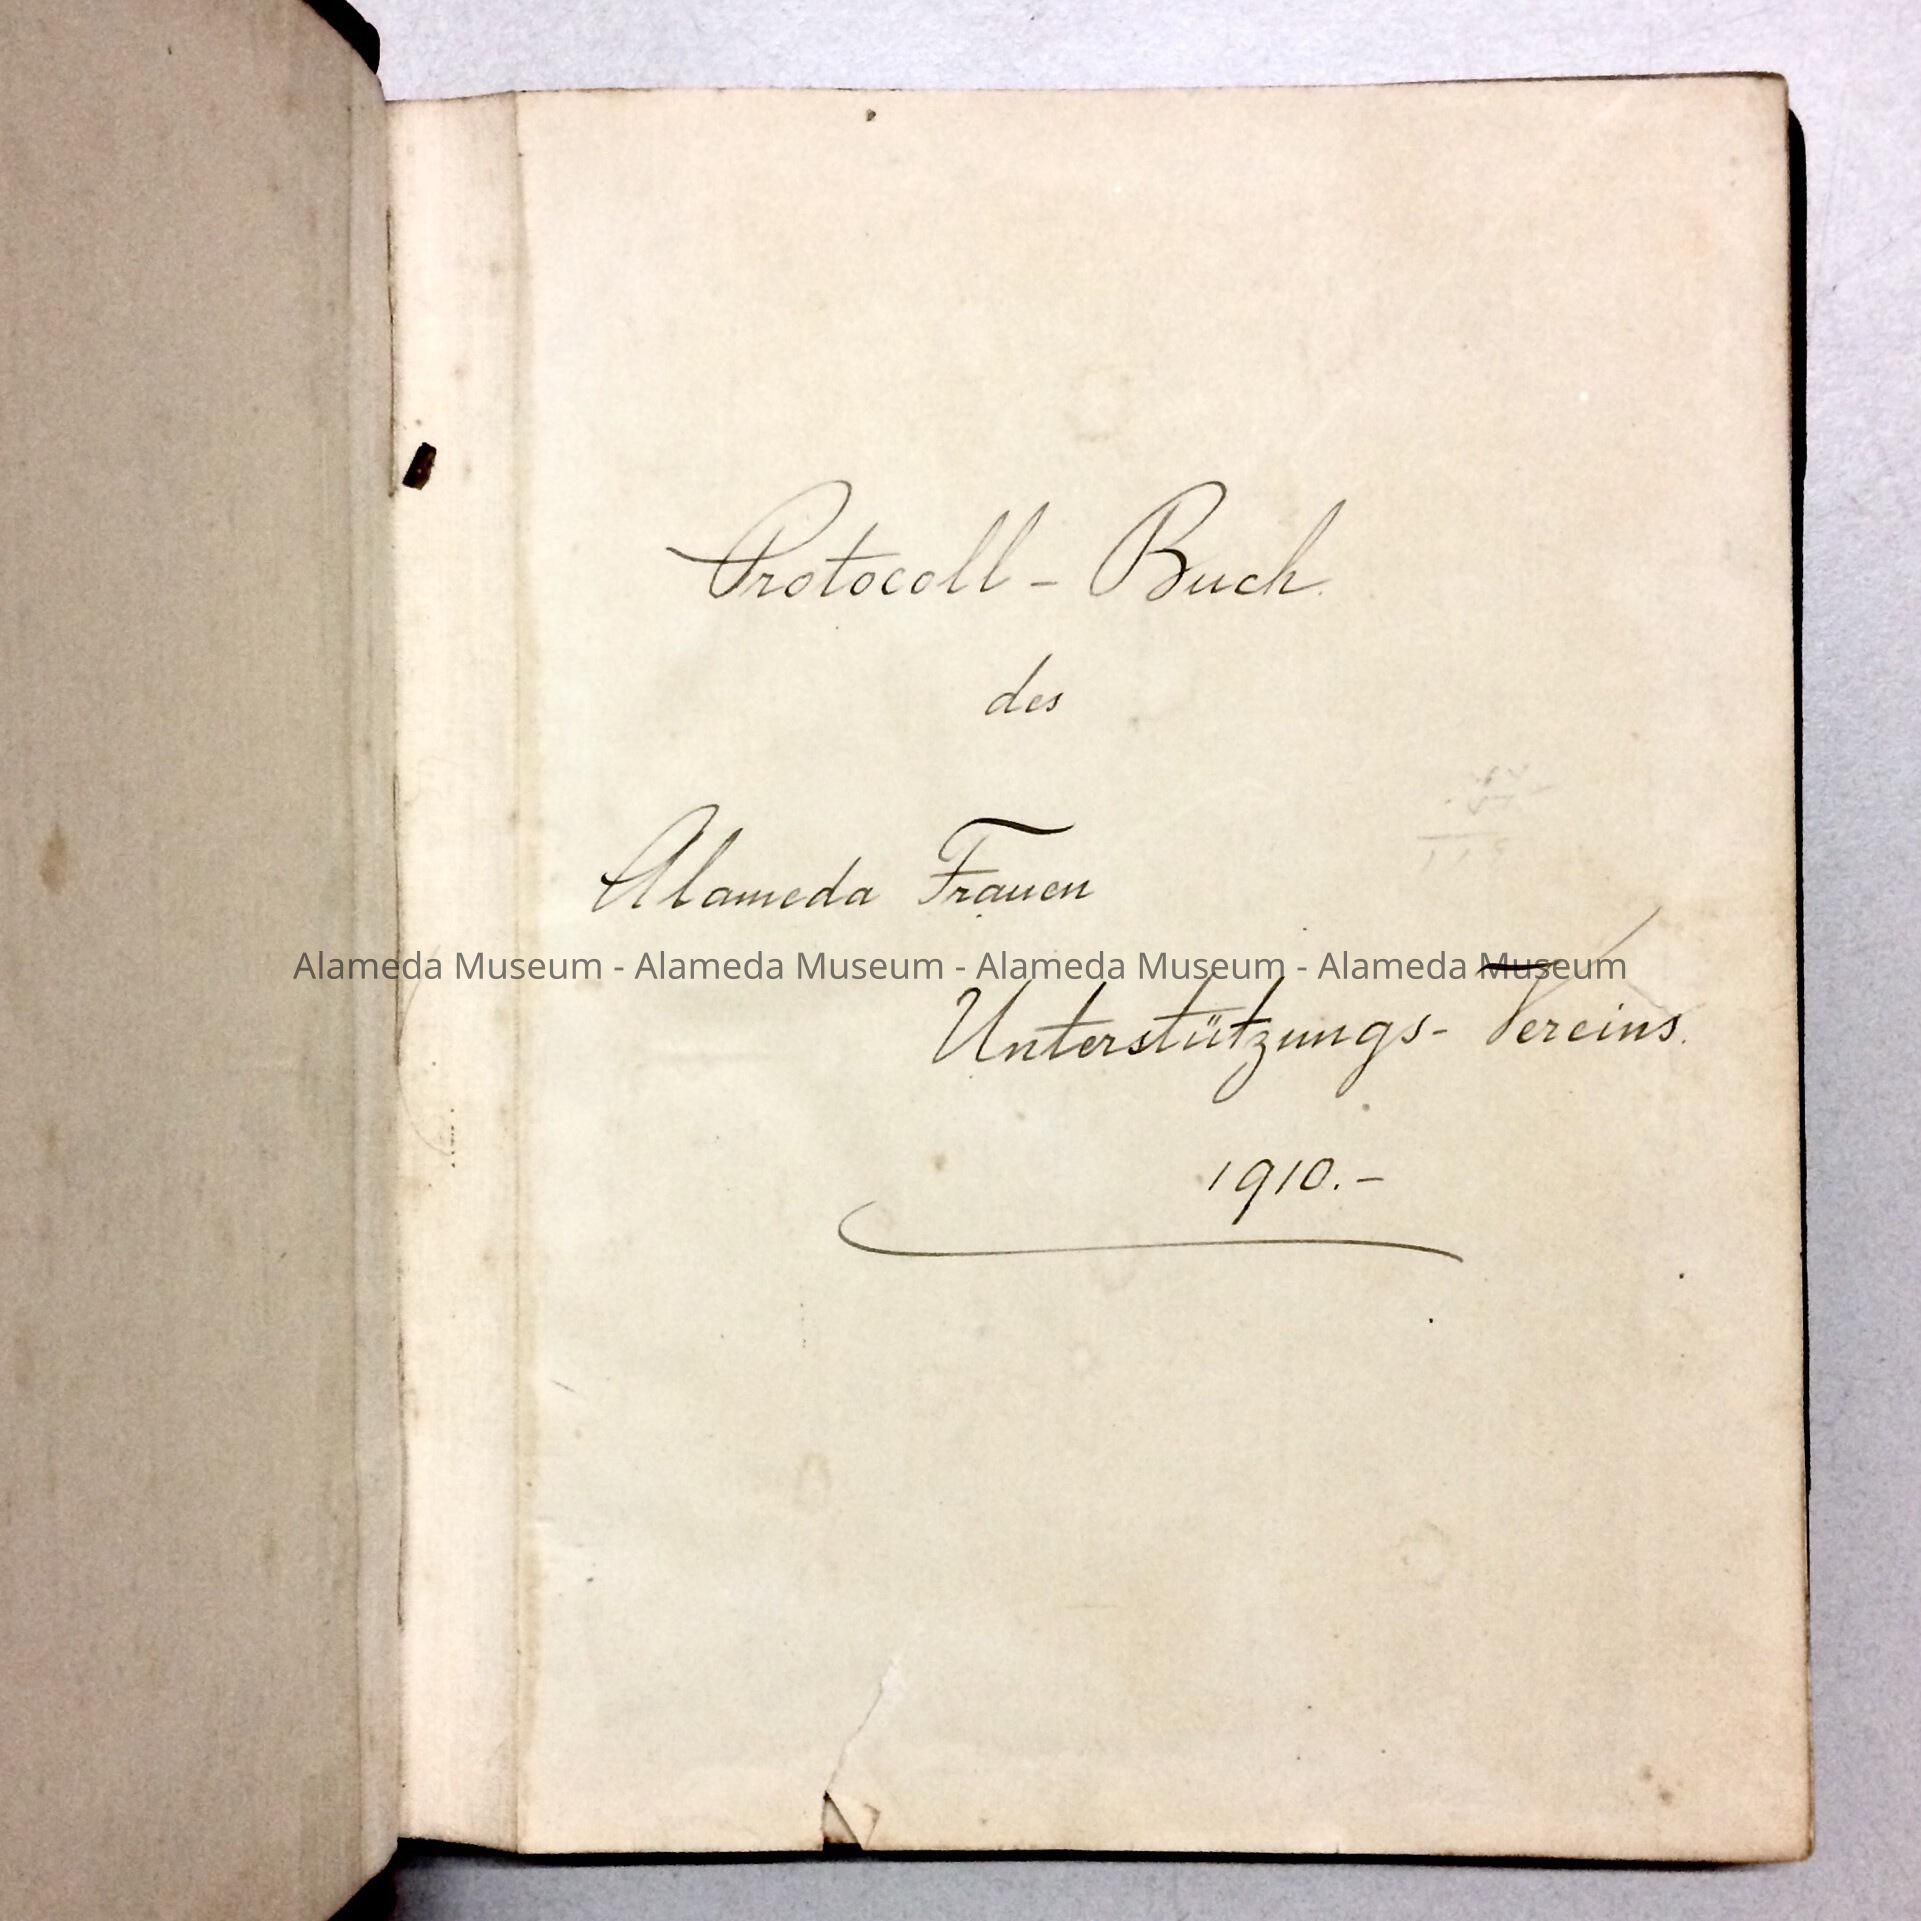 Protocoll - Buch.
des
Alameda Frauen
Alameda Museum - Alameda Museum - Alameda Museum - Alameda Museum
Unterstützungs- Vereins.
1910.-